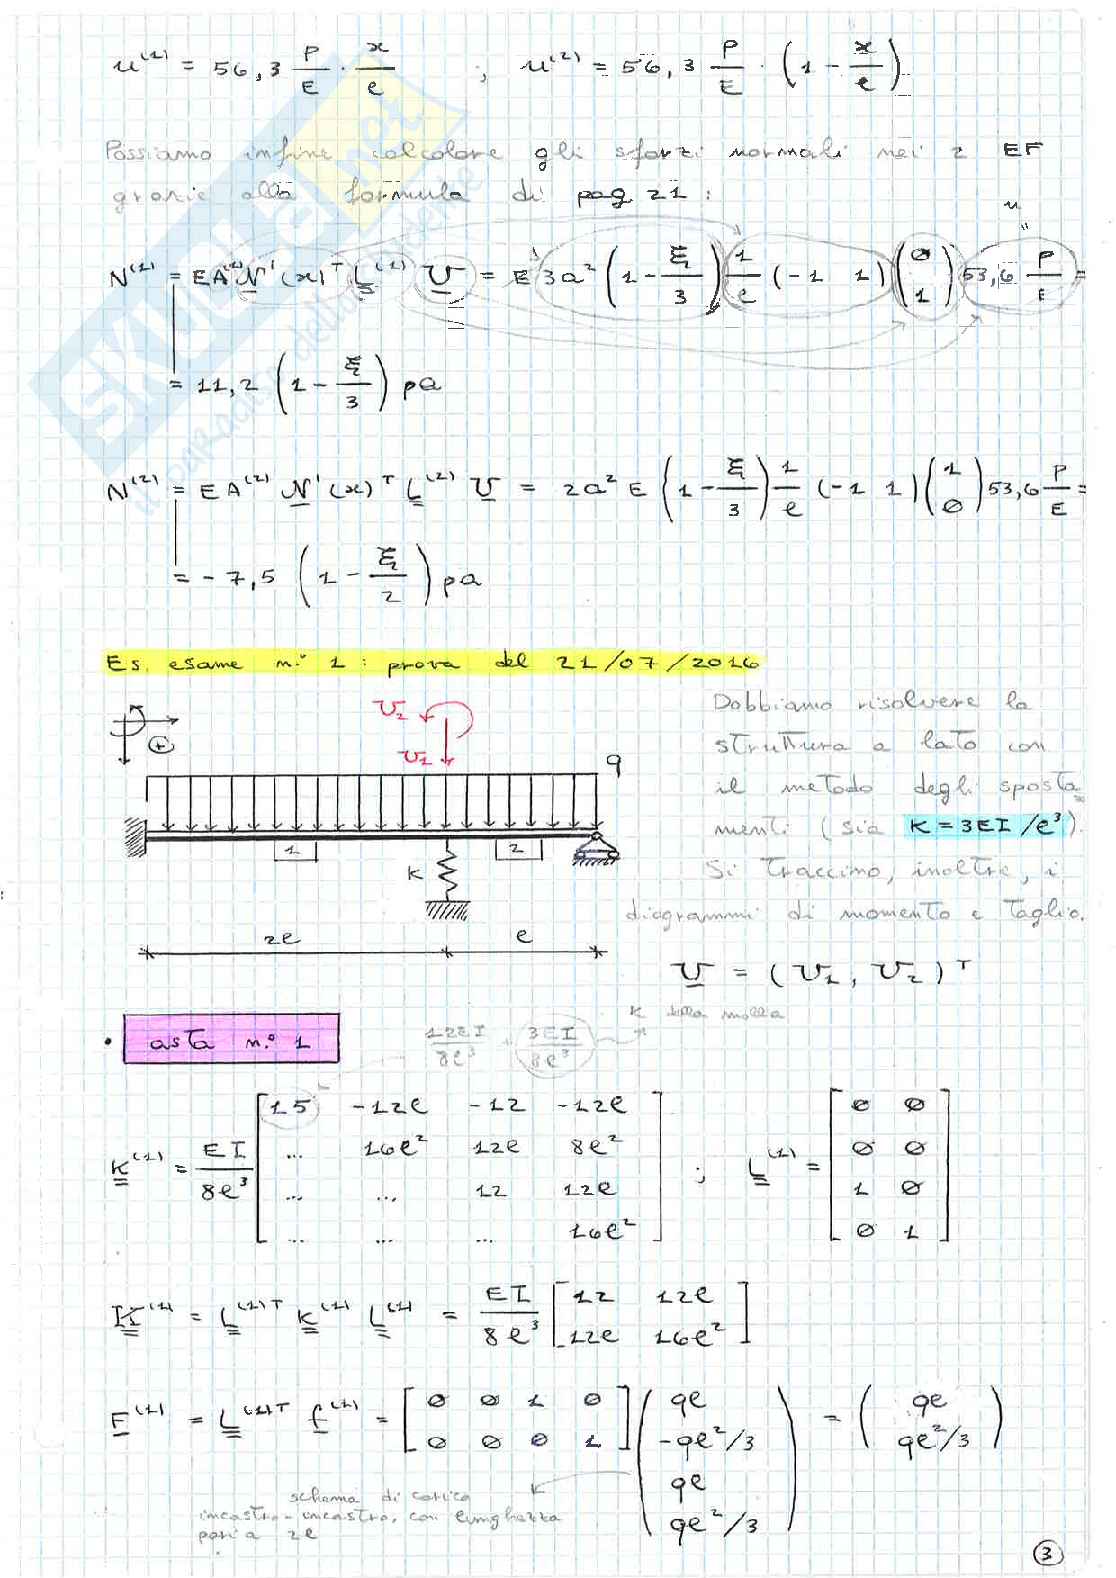 u⁽¹⁾ = 56,3 P/E · x/e ; u⁽²⁾ = 56,3 P/E · (1 - x/e)
Possiamo infine calcolare gli sforzi normali nei 2 EF
grazie alla formula di pag 21:
u
"
N⁽¹⁾ = EA⁽¹⁾ N'(x)ᵀ L⁽¹⁾ U = E 3a² (1 - ξ/3) 1/e (-1 1) (0 1) 53,6 P/E =
= 11,2 (1 - ξ/3) pa
N⁽²⁾ = EA⁽²⁾ N'(x)ᵀ L⁽²⁾ U = 2a² E (1 - ξ/3) 1/e (-1 1) (1 0) 53,6 P/E =
= -7,5 (1 - ξ/2) pa
Es. esame n.° 1 : prova del 21/07/2016
U₂
U₁
+
q
1
2
K
2e
e
Dobbiamo risolvere la
struttura a lato con
il metodo degli sposta
menti (sia K = 3EI/e³).
Si traccino, inoltre, i
diagrammi di momento e taglio.
U = (U₁, U₂)ᵀ
K della molla
12EI/8e³ + 3EI/8e³
• asta n.° 1
K⁽¹⁾ = EI/8e³ [15 -12e -12 -12e
... 16e² 12e 8e²
... ... 12 12e
... ... ... 16e²] ; L⁽¹⁾ = [0 0
0 0
1 0
0 1]
K⁽¹⁾ = L⁽¹⁾ᵀ K⁽¹⁾ L⁽¹⁾ = EI/8e³ [12 12e
12e 16e²]
F⁽¹⁾ = L⁽¹⁾ᵀ f⁽¹⁾ = [0 0 1 0
0 0 0 1] (qe
-qe²/3
qe
qe²/3) = (qe
qe²/3)
schema di carico
incastro-incastro, con lunghezza
pari a 2e
3
SKUOLA.net